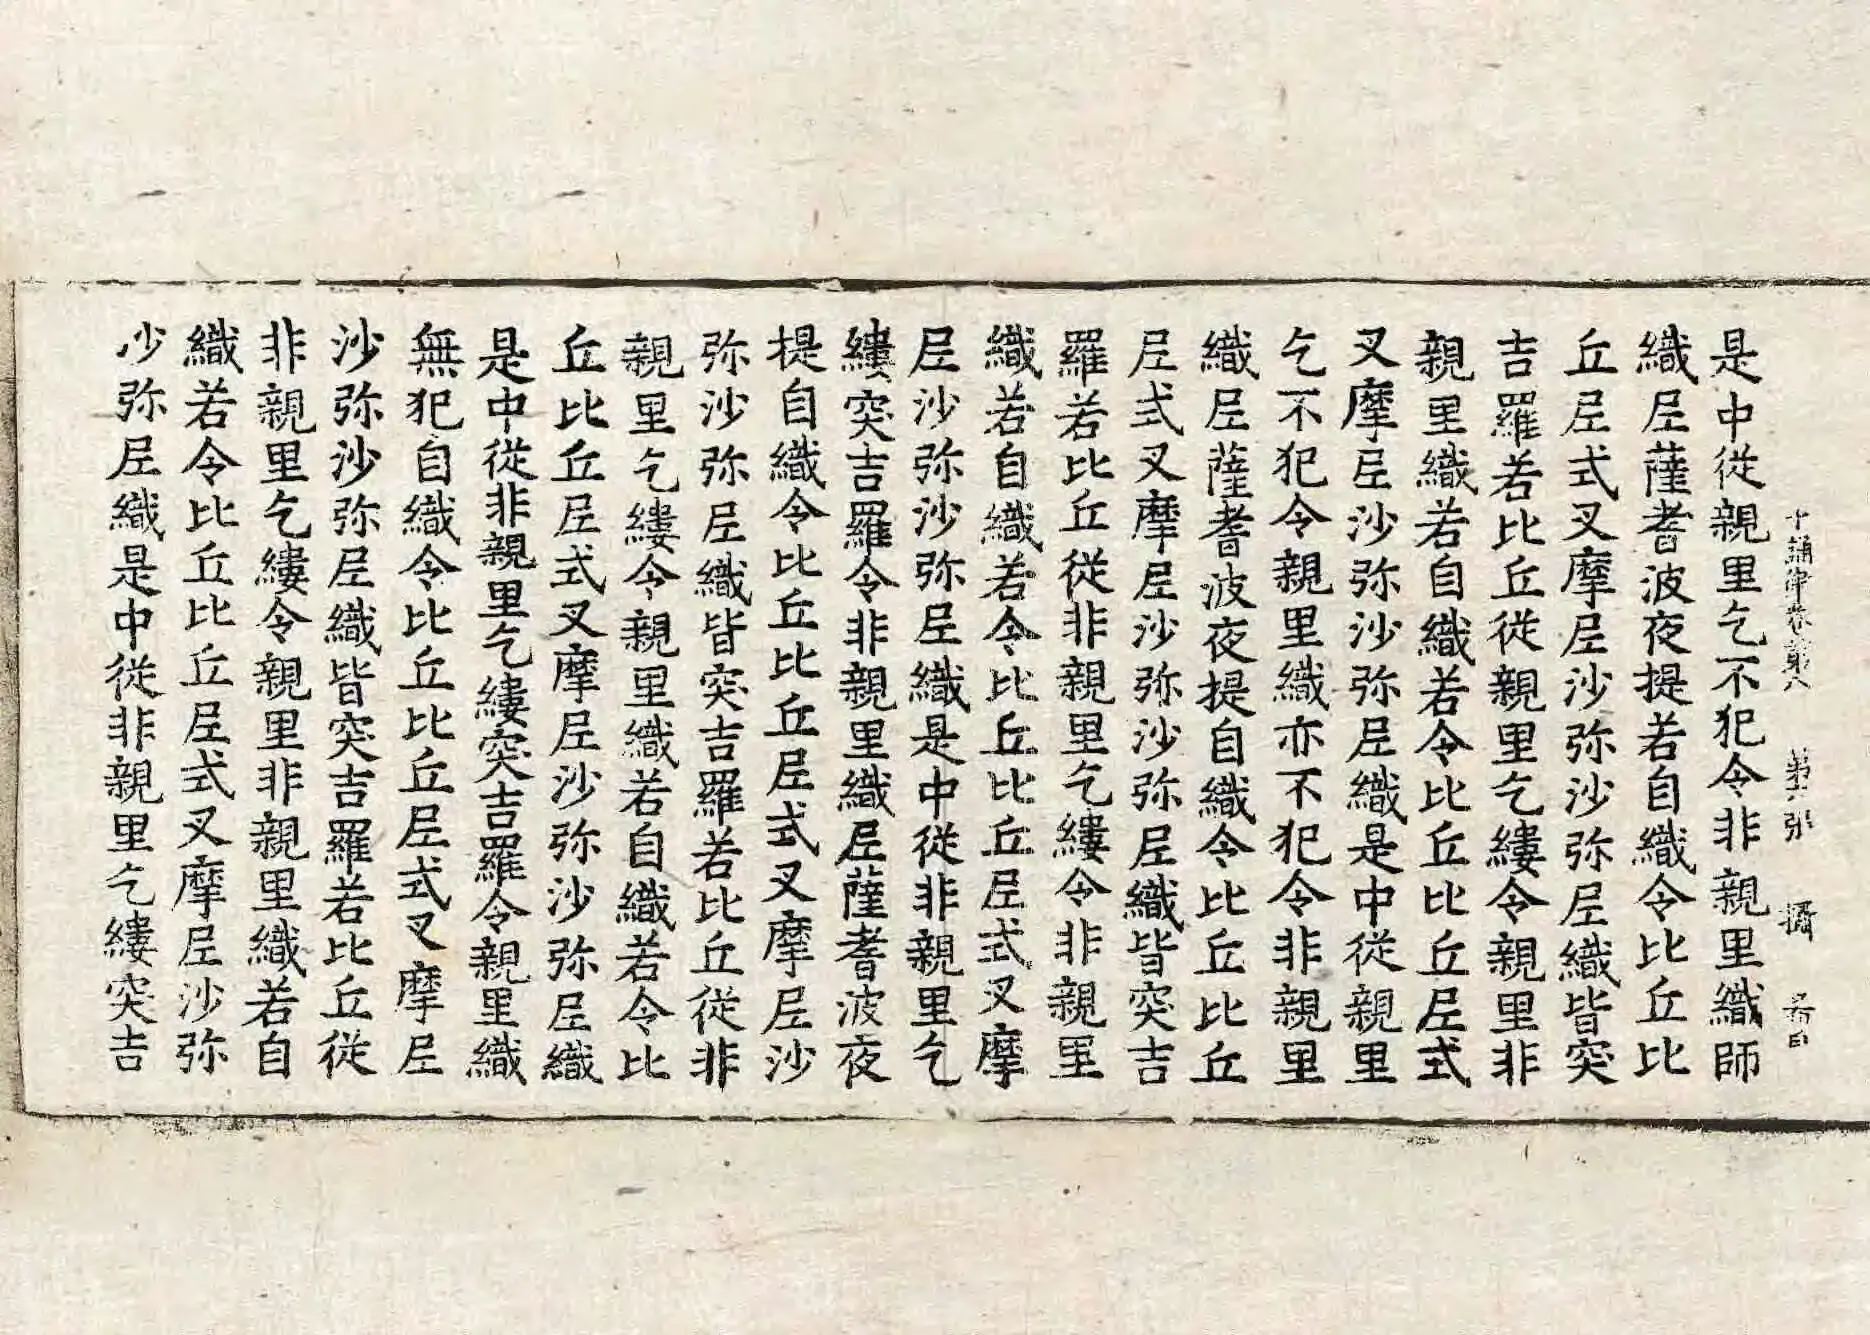 十誦律卷第八 第 張 攝
是中從親里乞不犯令非親里織師
織尼薩耆波夜提若自織令比丘比
丘尼式叉摩尼沙弥沙弥尼織皆突
吉羅若比丘從親里乞縷令親里非
親里織若自織若令比丘比丘尼式
叉摩尼沙弥沙弥尼織是中從親里
乞不犯令親里織亦不犯令非親里
織尼薩耆波夜提自織令比丘比丘
尼式叉摩尼沙弥沙弥尼織皆突吉
羅若比丘從非親里乞縷令非親里
織若自織若令比丘比丘尼式叉摩
尼沙弥沙弥尼織是中從非親里乞
縷突吉羅令非親里織尼薩耆波夜
提自織令比丘比丘尼式叉摩尼沙
弥沙弥尼織皆突吉羅若比丘從非
親里乞縷令親里織若自織若令比
丘比丘尼式叉摩尼沙弥沙弥尼織
是中從非親里乞縷突吉羅令親里織
無犯自織令比丘比丘尼式叉摩尼
沙弥沙弥尼織皆突吉羅若比丘從
非親里乞縷令親里非親里織若自
織若令比丘比丘尼式叉摩尼沙弥
沙弥尼織是中從非親里乞縷突吉